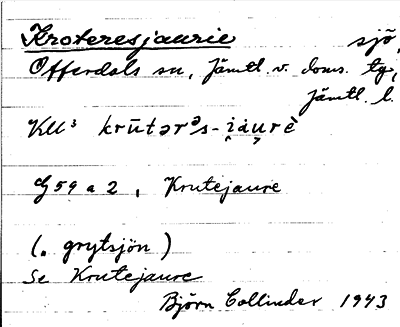 Kroteresjaurie sjö,
Offerdals sn, Jämtl. v. doms. tg,
Jämtl. l.
KU³ krūtərᵊs-i̯àu̯rè
G 59 a 2, Krutejaure
(. grytsjön)
Se Krutejaure
Björn Collinder 1943